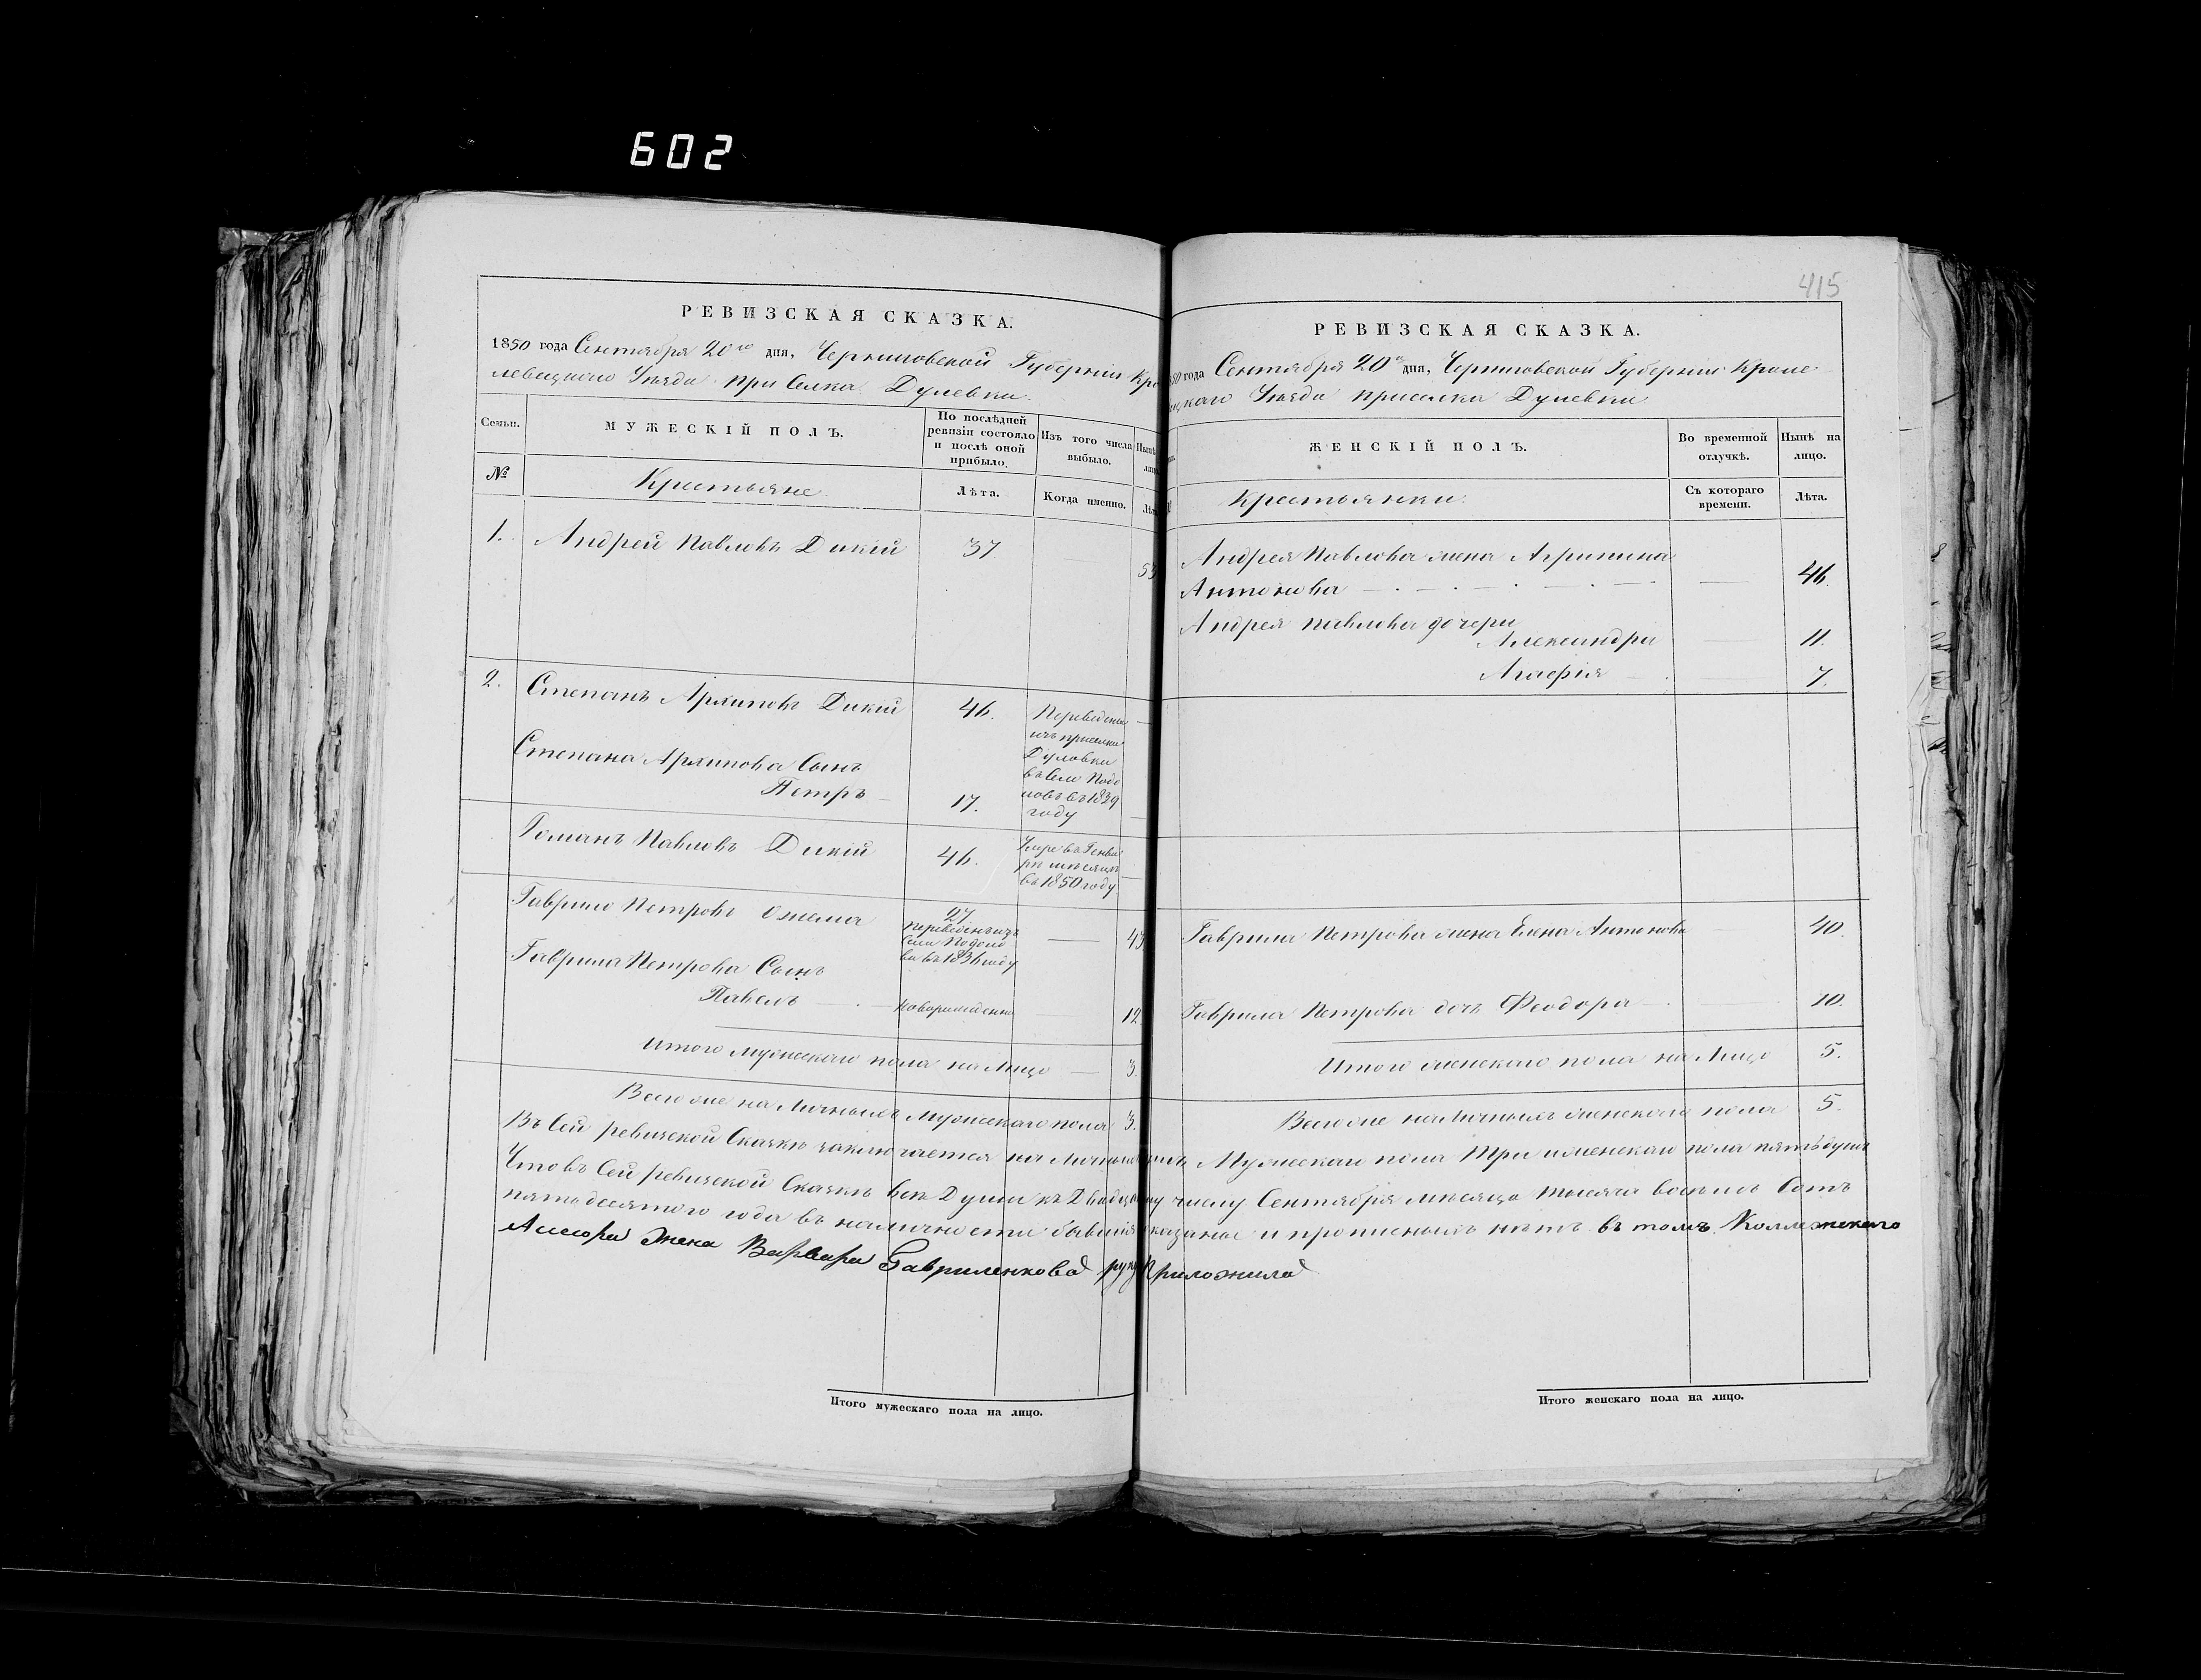 602
415
РЕВИЗСКАЯ СКАЗКА.
1850 года Сентября 20го дня, Черниговской Губерніи Кро
левецкаго Уѣзда при Селка Дулевки.
Семьи.
МУЖЕСКІЙ ПОЛЪ.
По послѣдней
ревизіи состояло
и послѣ оной
прибыло.
Изъ того числа
выбыло.
Нынѣ
лицо
№
Крестьяне.
Лѣта.
Когда именно.
Лѣта
1. Андрей Павловъ Дикій 37 — 53
2. Степанъ Архиповъ Дикій 46.
Переведены
изъ приселка
Дуловки
въ Село Подо
ловъ въ 1839
году
Степана Архипова Сынъ
Петръ — 17.
Романъ Павловъ Дикій 46.
Умре въ Генва
рѣ мѣсяцѣ
въ 1850 году
Гаврило Петровъ 27.
переведенъ изъ
Села Подоло
ва въ 1836 году
— 43
Гаврила Петрова Сынъ
Павелъ — новорожденно — 12.
Итого мужескаго пола на Лицо — 3.
Всего же на Личныхъ Мужескаго пола 3.
РЕВИЗСКАЯ СКАЗКА.
50 года Сентября 20го дня, Черниговской Губерніи Кроле
цкаго Уѣзда приселка Дулевки
ЖЕНСКІЙ ПОЛЪ.
Во временной
отлучкѣ.
Нынѣ на
лицо.
Крестьянки.
Съ котораго
времени.
Лѣта.
Андрея Павлова жена Агрипина
Антонова — — — — — 46.
Андрея Павлова дочери
Александра — 11.
Агафія — — 7.
Гаврила Петрова жена Елена Антонова — 40.
Гаврила Петрова дочь Феодора — — 10.
Итого женскаго пола на Лицо 5.
Всего же на Личныхъ женскаго пола 5.
Въ Сей ревизской Сказкѣ заключается на Личныхъ Мужескаго пола три и женскаго пола пять душъ
Что въ Сей ревизской Сказкѣ всѣ Души къ Двадцатому числу Сентября мѣсяца тысяча восемь Сотъ
пятьдесятого года въ наличности бывшія показаны и прописныхъ нѣтъ въ томъ Коллежскаго
Асесора Жена Варвара Гавриленкова руку Приложила
Итого мужескаго пола на лицо.
Итого женскаго пола на лицо.